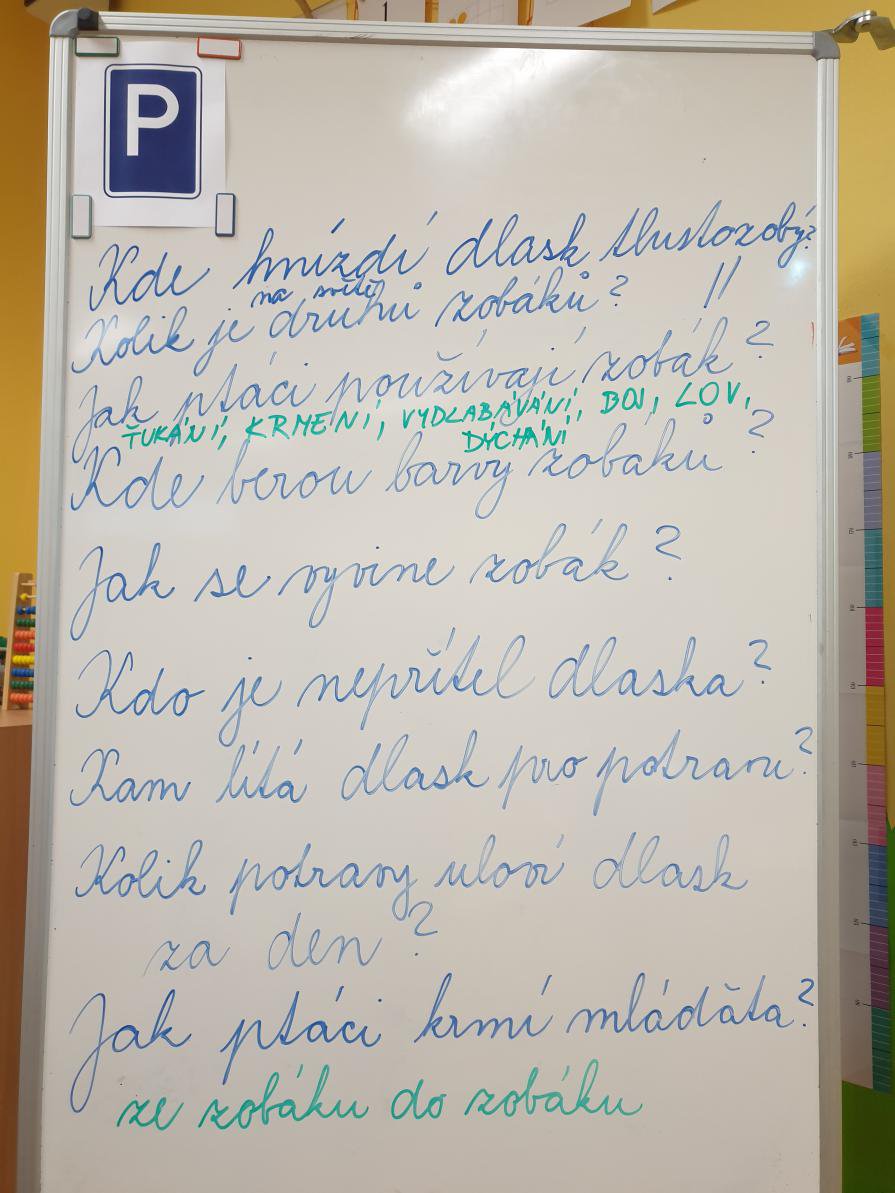 P
Kde hnízdí dlask tlustozobý?
na světě
Kolik je druhů zobáků? ||
Jak ptáci používají zobák?
ŤUKÁNÍ, KRMENÍ, VYDLABÁVÁNÍ, BOJ, LOV,
DÝCHÁNÍ
Kde berou barvy zobáků?
Jak se vyvine zobák?
Kdo je nepřítel dlaska?
Kam lítá dlask pro potravu?
Kolik potravy uloví dlask
za den?
Jak ptáci krmí mláďata?
ze zobáku do zobáku